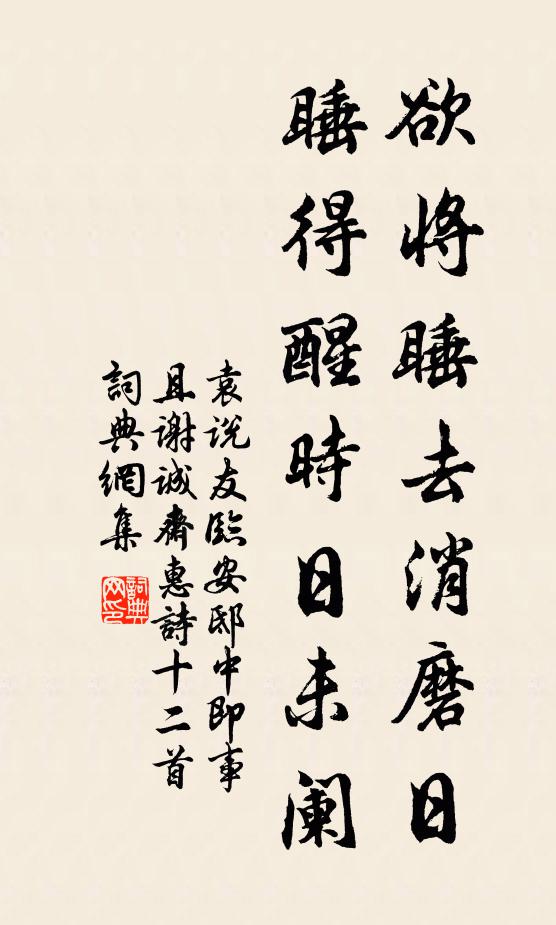 欲將睡去消磨日
睡得醒時日未闌
袁说友臨安邸中即事
且謝誠齋惠詩十二首
詞典網集
詞典
网印